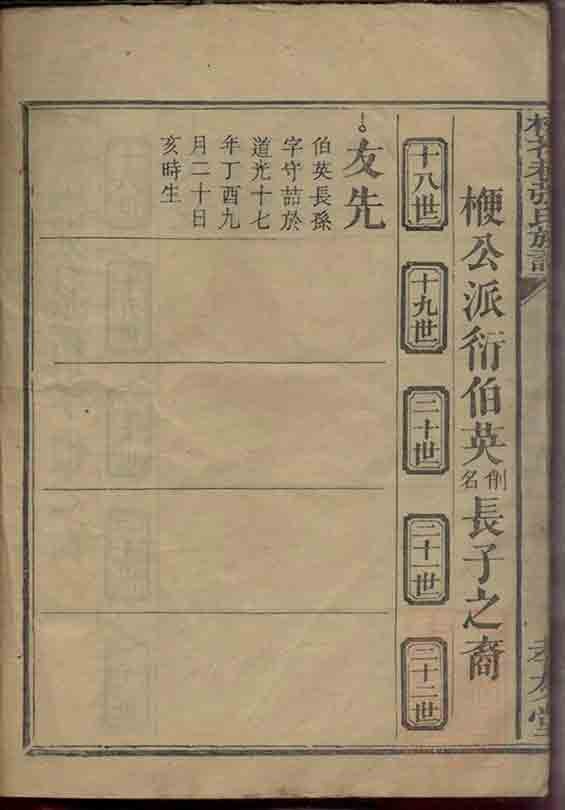 張氏族譜
孝友堂
楩公派衍伯英削名長子之裔
十八世
十九世
二十世
二十一世
二十二世
友先
伯英長孫
字守喆於
道光十七
年丁酉九
月二十日
亥時生